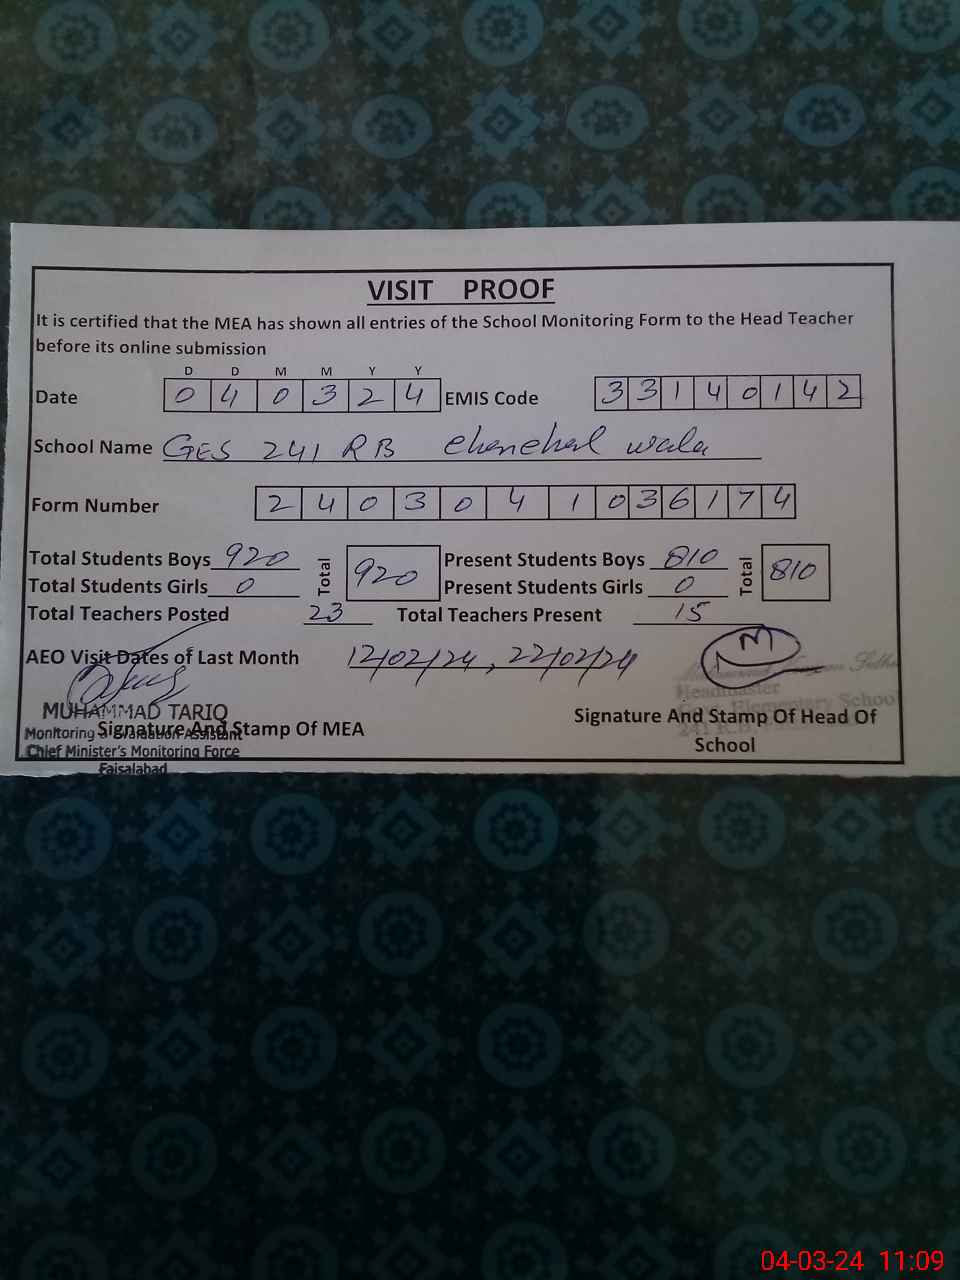 VISIT PROOF
It is certified that the MEA has shown all entries of the School Monitoring Form to the Head Teacher
before its online submission
D D M M Y Y
Date 0 4 0 3 2 4 EMIS Code 3 3 1 4 0 1 4 2
School Name GES 241 RB chenchal wala
Form Number 2 4 0 3 0 4 1 0 3 6 1 7 4
Total Students Boys 920 Total 920 Present Students Boys 810 Total 810
Total Students Girls 0 Present Students Girls 0
Total Teachers Posted 23 Total Teachers Present 15
AEO Visit Dates of Last Month 12/02/24, 22/02/24
MUHAMMAD TARIQ
Monitoring & Evaluation Assistant
Chief Minister's Monitoring Force
Faisalabad
Signature And Stamp Of MEA
Headmaster
Govt. Elementary School
241 R.B.
Signature And Stamp Of Head Of
School
04-03-24 11:09